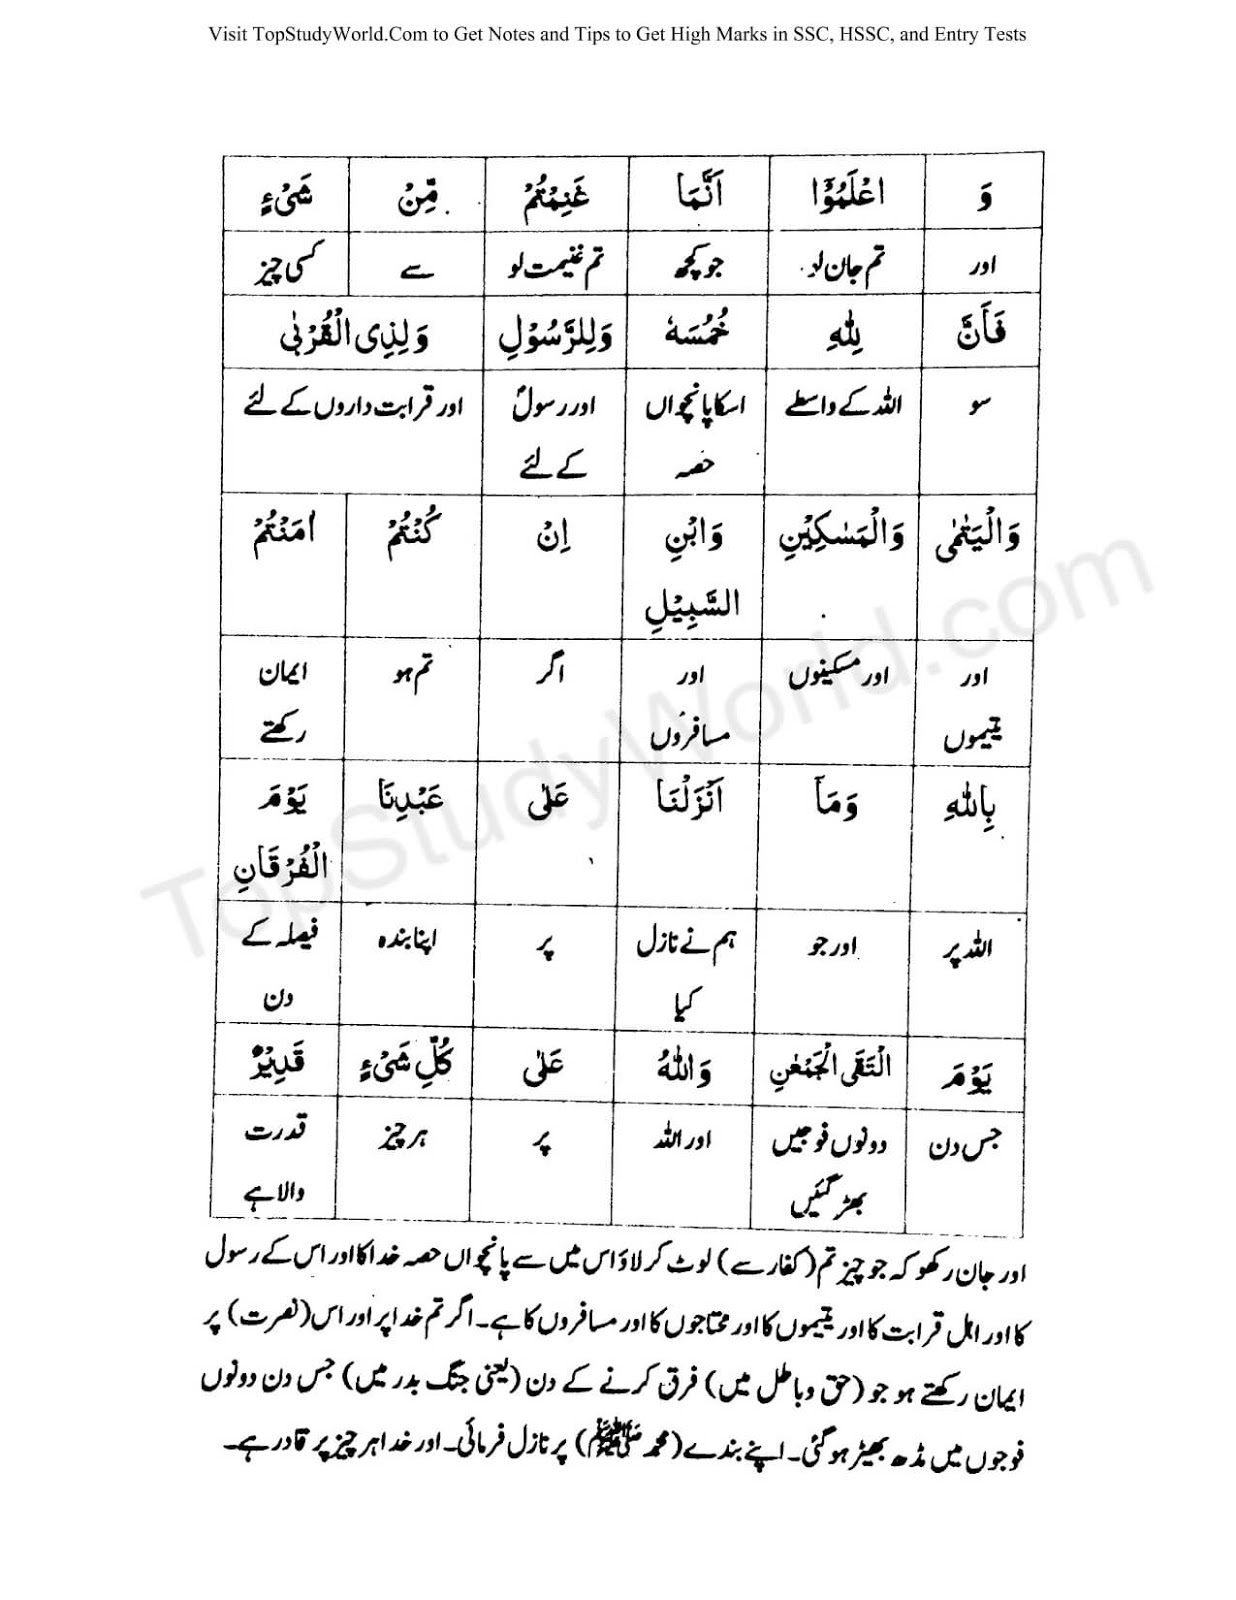 Visit TopStudyWorld.Com to Get Notes and Tips to Get High Marks in SSC, HSSC, and Entry Tests
وَ اعْلَمُوْٓا اَنَّمَا غَنِمْتُمْ مِّنْ شَیْءٍ
اور تم جان لو جو کچھ تم غنیمت لو سے کسی چیز
فَاَنَّ لِلّٰهِ خُمُسَهٗ وَلِلرَّسُوْلِ وَلِذِی الْقُرْبٰی
سو اللہ کے واسطے اسکا پانچواں اور رسولؐ اور قرابت داروں کے لئے
حصہ کے لئے
وَالْیَتٰمٰی وَالْمَسٰکِیْنِ وَابْنِ اِنْ کُنْتُمْ اٰمَنْتُمْ
السَّبِیْلِ
اور اور مسکینوں اور اگر تم ہو ایمان
یتیموں مسافروں رکھتے
بِاللّٰهِ وَمَآ اَنْزَلْنَا عَلٰی عَبْدِنَا یَوْمَ
الْفُرْقَانِ
اللہ پر اور جو ہم نے نازل پر اپنا بندہ فیصلہ کے
کیا دن
یَوْمَ الْتَقَی الْجَمْعٰنِ وَاللّٰهُ عَلٰی کُلِّ شَیْءٍ قَدِیْرٌ
جس دن دونوں فوجیں اور اللہ پر ہر چیز قدرت
بھڑ گئیں والا ہے
اور جان رکھو کہ جو چیز تم (کفار سے) لوٹ کر لاؤ اس میں سے پانچواں حصہ خدا کا اور اس کے رسول
کا اور اہل قرابت کا اور یتیموں کا اور محتاجوں کا اور مسافروں کا ہے۔ اگر تم خدا پر اور اس (نصرت) پر
ایمان رکھتے ہو جو (حق و باطل میں) فرق کرنے کے دن (یعنی جنگ بدر میں) جس دن دونوں
فوجوں میں مڈھ بھیڑ ہو گئی۔ اپنے بندے (محمد ﷺ) پر نازل فرمائی۔ اور خدا ہر چیز پر قادر ہے۔
TopStudyWorld.com